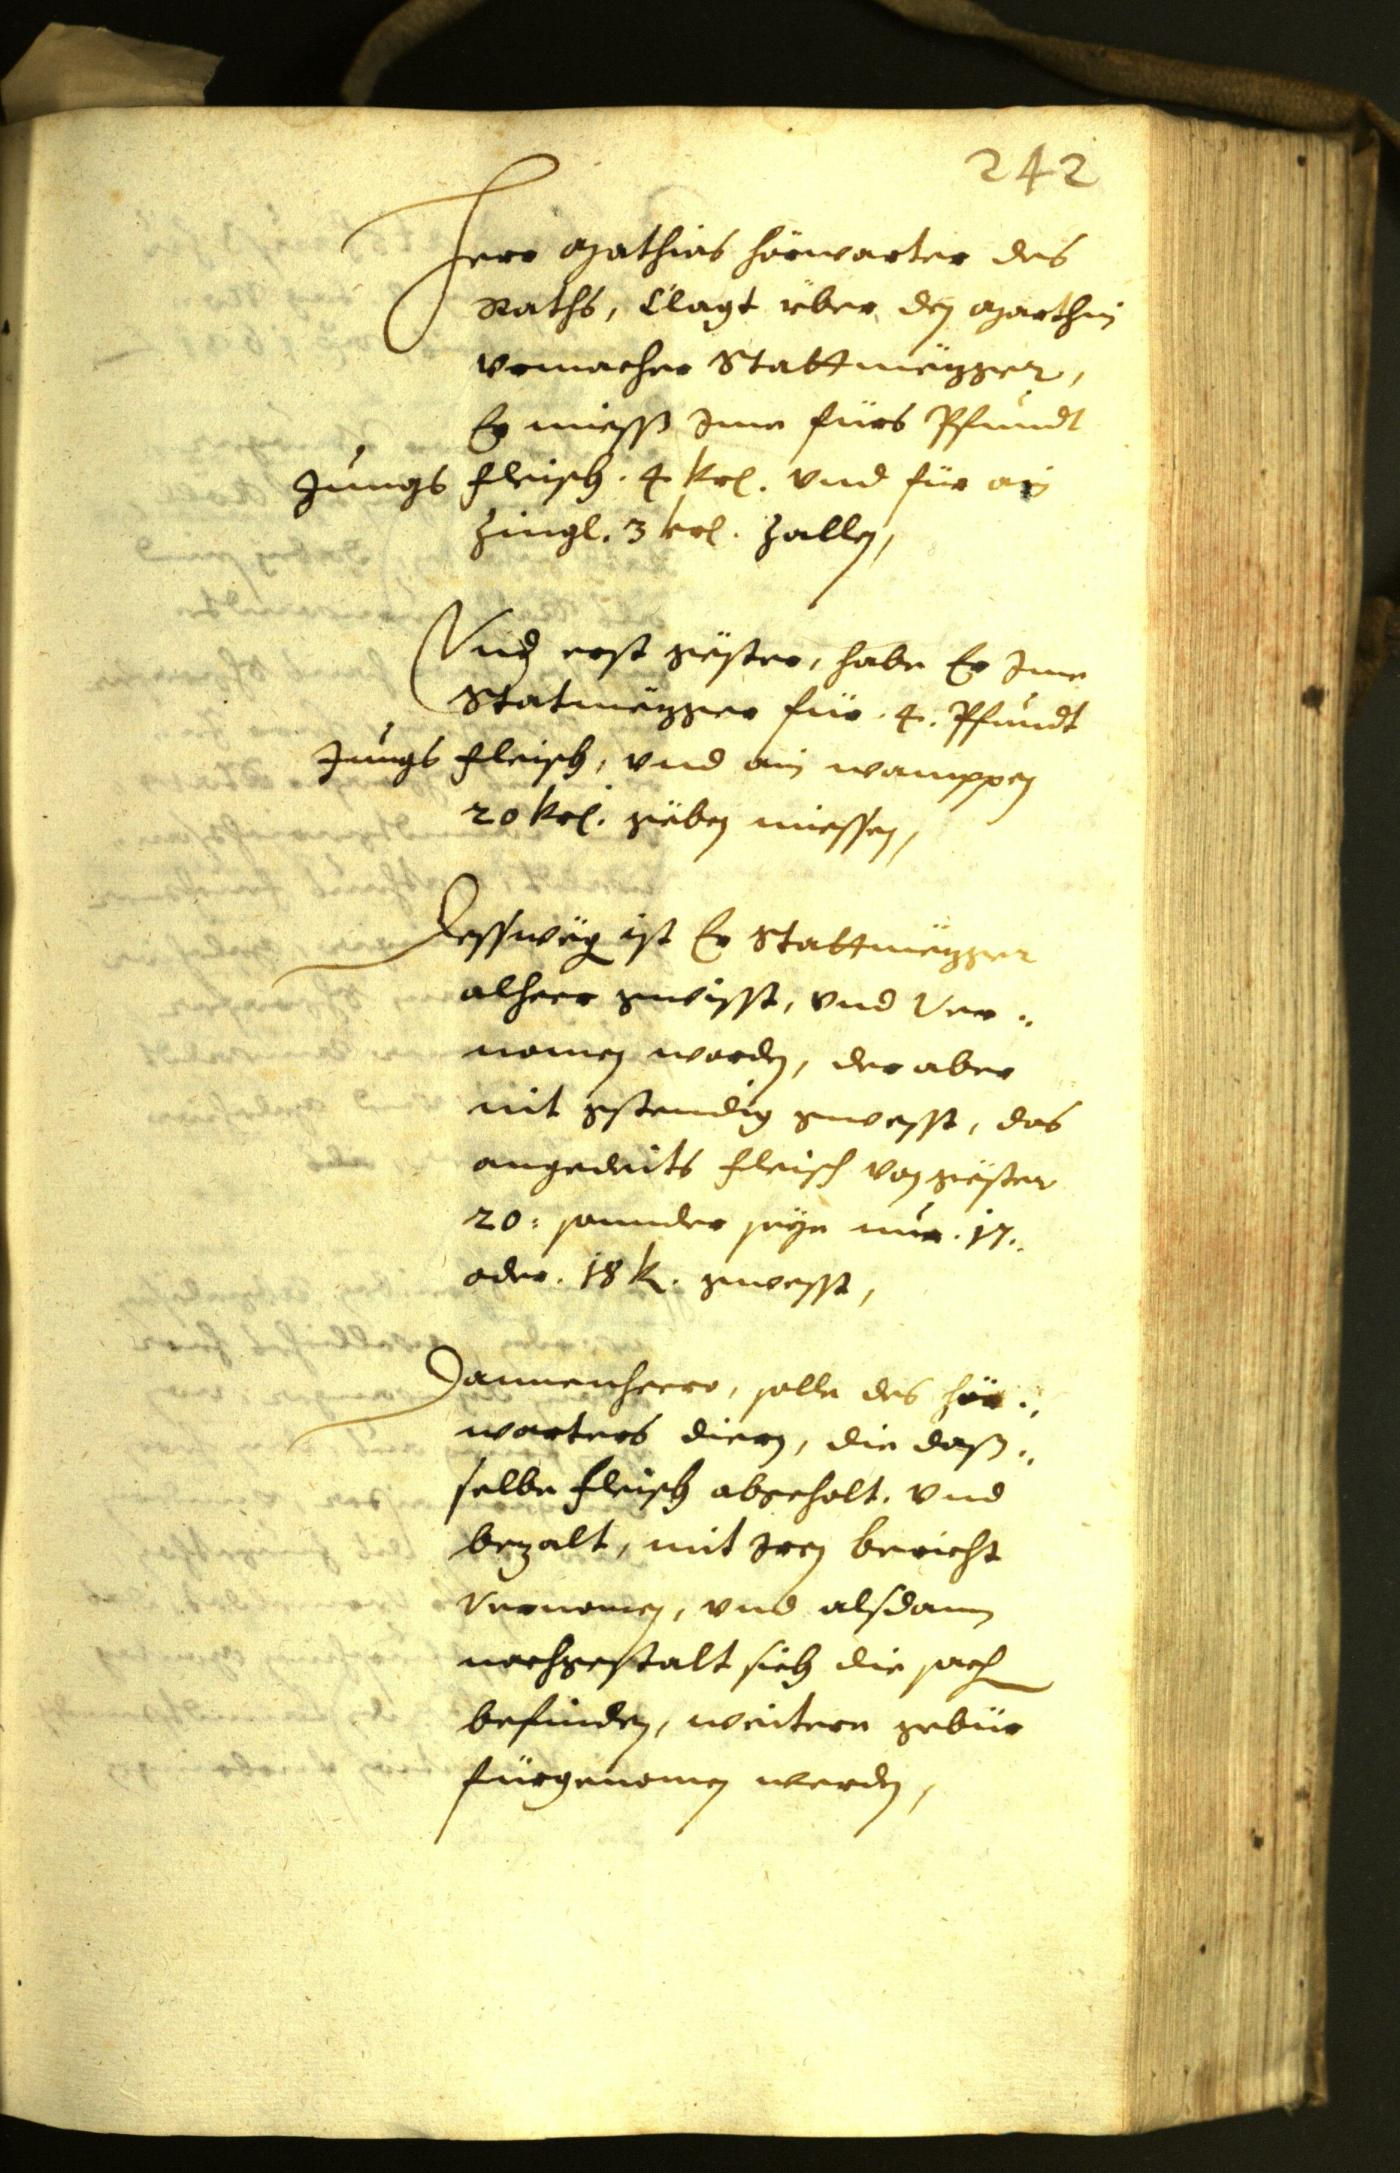 242
Herr Mathias Hörwarter des
Raths, Clagt über den Marthin
Vrmacher Stattmëzger,
Er miesß Ime fürs Pfundt
Jungs fleisch . 4 krl. vnd für ain
Züngl. 3 krl. Zallen,
Vnd erst gëster, habe Er Ime
Statmëzger für . 4. Pfundt
Jungs fleisch, vnd ain wamppen
20 krl. gëben miessen,
Desswëg ist Er Stattmëzger
alheer gwisst, vnd Ver¬
nomen worden, der aber
nit gstendig gwesst, das
angedeits fleisch von gëster
20: sonnder seye nur . 17.
oder . 18 k. gwesst,
Dannenheero, solle des Hör¬
warters diern, die daß¬
selbe fleisch abgeholt. vnd
bezalt, mit Iren bericht
Vernomen, vnd alsdann
nachgestalt sich die sach
befinden, weitere gebür
fürgenomen werden,